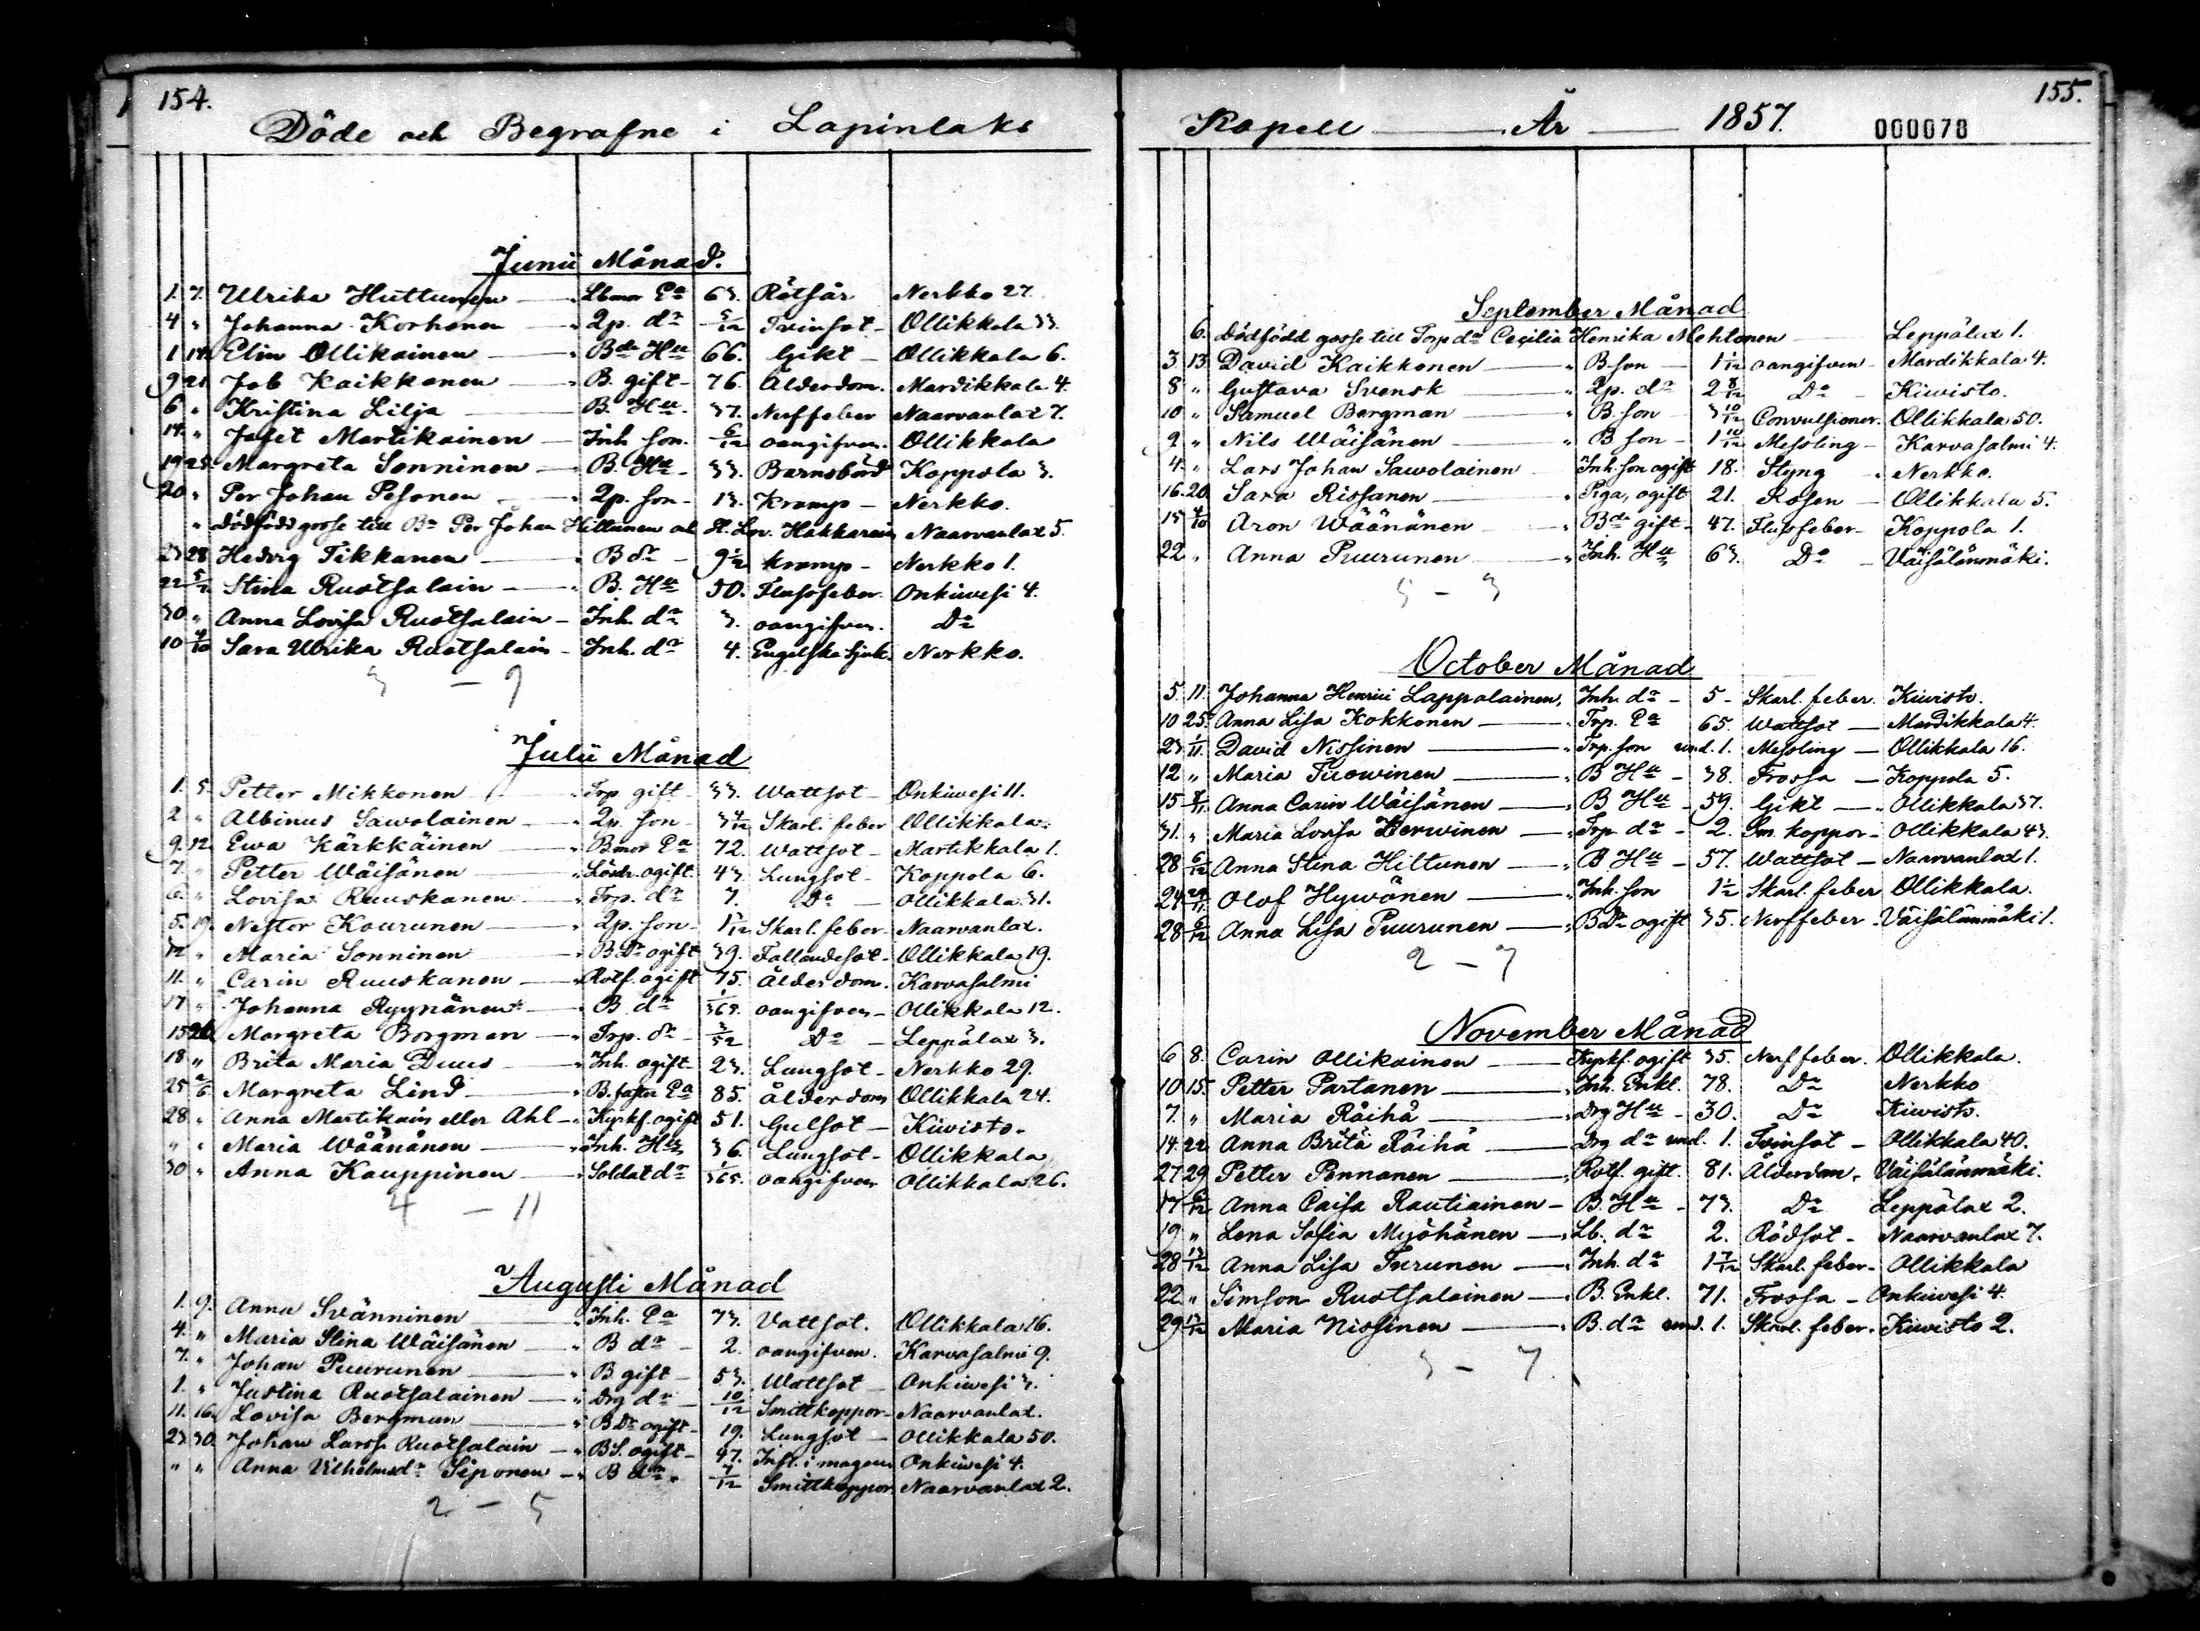 154.
Döde och Begrafne i Lapinlaks
Junii Månad.
1. 7. Ulrika Huttunen Lbmor Ea 63. Rötsår Nerkko 27.
4 " Johanna Korhonen 2p. dr 5/12 Tvinsot Ollikkala 33.
1. 14. Elin Ollikainen Bde Hu 66. Gikt Ollikkala 6.
9 21 Job Kaikkonen B. gift 76. Ålderdom. Mardikkala 4.
6 " Kristina Lilja B. Hu 37. Nerffeber Naarvanlax 7.
14. " Jafet Martikainen Inh son. 6/12 oangifven. Ollikkala
19 25. Margreta Sonninen B. Hu 33. Barnsbörd Koppola 3.
20 " Per Johan Pesonen 2p. son 13. Kramp Nerkko.
" dödfödd gosse till Bn Per Johan Hiltunen och H. Lov. Hakkarain Naarvanlax 5.
23 28 Hedvig Tikkanen B dr 9 1/2 kramp Nerkko 1.
22 5/7 Stina Ruotsalain B. Hu 50. Flussfeber Onkiwesi 4.
30 " Anna Lovisa Ruotsalain Inh. dr 3. oangifven. Do
10 4/10 Sara Ulrika Ruotsalain Inh. dr 4. Engelska sjuk. Nerkko.
3 – 9
Julii Månad
1. 5. Petter Mikkonen Trp. gift 33. Wattsot Onkiwesi 11.
2 " Albinus Sawolainen 2p. son 3 4/12 Skarl. feber Ollikkala.
9. 12. Ewa Kärkkäinen Bmor Ea 72. Wattsot Martikkala 1.
7. " Petter Wäisänen Lösdr. ogift 43. Lungsot Koppola 6.
6. " Lovisa Ruuskanen Trp. dr 7. Do Ollikkala 31.
5. 19. Nestor Kourunen 2p. son 1 5/12 Skarl. feber Naarvanlax.
12 " Maria Sonninen B Dr ogift 39. Fallandesot Ollikkala 19.
11. " Carin Ruuskanen Rotf. ogift 75. Ålderdom. Karvasalmi
17 " Johanna Ryynänen B. dr 1/365. oangifven Ollikkala 12.
15 26 Margreta Borgman Trp. dr 3/52 Do Leppälax 3.
18 " Brita Maria Duus Inh. ogift 23. Lungsot Nerkko 29.
25 2/6 Margreta Lind B. faster Ea 85. Ålderdom Ollikkala 24.
28 " Anna Martikain eller Ahl Kyrkf. ogift 51. Gulsot Kiwisto.
" " Maria Wäänänen Inh. Hu 36. Lungsot Ollikkala
30 " Anna Kauppinen Soldat dr 1/365. oangifven Ollikkala 26.
4 – 11
Augusti Månad
1. 9. Anna Svänninen Inh. Ea 73. Vattsot. Ollikkala 16.
4. " Maria Stina Wäisänen B dr 2. oangifven. Karvasalmi 9.
7. " Johan Puurunen B gift 53. Wattsot Onkiwesi 3.
1. " Justina Ruotsalainen Drg dr 10/12 Smittkoppor Naarvanlax.
11. 16. Lovisa Bergman B Dr ogift 19. Lungsot Ollikkala 50.
23 30. Johan Larss. Ruotsalain B S. ogift 47. Infl. i magen Onkiwesi 4.
" " Anna Vilhelmsdr Siponen B dr 4/12 Smittkoppor Naarvanlax 2.
2 – 5
155.
Kapell År 1857. 000078
September Månad
6. dödfödd gosse till Torp dr Cecilia Henrika Mehtonen Leppälax 1.
3. 13. David Kaikkonen B son 1 1/12 oangifven Mardikkala 4.
8 " Gustava Svensk 2p. dr 2 8/12 Do Kiwisto.
10 " Samuel Bergman B. son 3 10/12 Convulsioner. Ollikkala 50.
9 " Nils Wäisänen B son 1 10/12 Messling Karvasalmi 4.
4. " Lars Johan Sawolainen Inh. son ogift 18. Styng Nerkko.
16. 20. Sara Rissanen Piga, ogift 21. Rosen Ollikkala 5.
15 4/10 Aron Wäänänen Bde gift 47. Flussfeber Koppola 1.
22 " Anna Puurunen Inh. Hu 63. Do Väisälänmäki.
5 – 3
October Månad
5. 11. Johanna Henrici Lappalainen, Inh. dr 5 Skarl. feber. Kiwisto.
10 25. Anna Lisa Kokkonen Trp. Ea 65. Wattsot Mardikkala 4.
23 1/11. David Nissinen Trp. son und. 1. Messling Ollikkala 16.
12 " Maria Tuowinen B Hu 38. Frossa Koppola 5.
15 8/11 Anna Carin Wäisänen B Hu 59. Gikt Ollikkala 37.
31. " Maria Lovisa Berwinen Trp. dr 2. Sm. koppor Ollikkala 43.
28 6/12 Anna Stina Hiltunen B Hu 57. Wattsot Naarvanlax 1.
24 29/11 Olof Hywönen Inh. son 1 1/2 Skarl. feber Ollikkala.
28 6/12 Anna Lisa Puurunen B Dr ogift 35. Nerffeber Väisälänmäki 1.
2 – 7
November Månad
6 8. Carin Ollikainen Kyrkf. ogift 35. Nerffeber. Ollikkala.
10 15. Petter Partanen Inh. Enkl. 78. Do Nerkko
7. " Maria Räihä Drg Hu 30. Do Kiwisto.
14. 22 Anna Brita Räihä Drg dr und. 1. Tvinsot Ollikkala 40.
27 29 Petter Pennanen Rotf. gift. 81. Ålderdom. Väisälänmäki.
17 6/12 Anna Caisa Rautiainen B. Hu 73. Do Leppälax 2.
19 " Lena Sofia Myöhänen Lb. dr 2. Rödsot Naarvanlax 7.
28 13/12 Anna Lisa Turunen Inh. dr 1 7/12 Skarl. feber Ollikkala
22. " Simson Ruotsalainen B. Enkl. 71. Frossa Onkiwesi 4.
29 13/12 Maria Nissinen B. dr und. 1. Skarl. feber. Kiwisto 2.
3 – 7